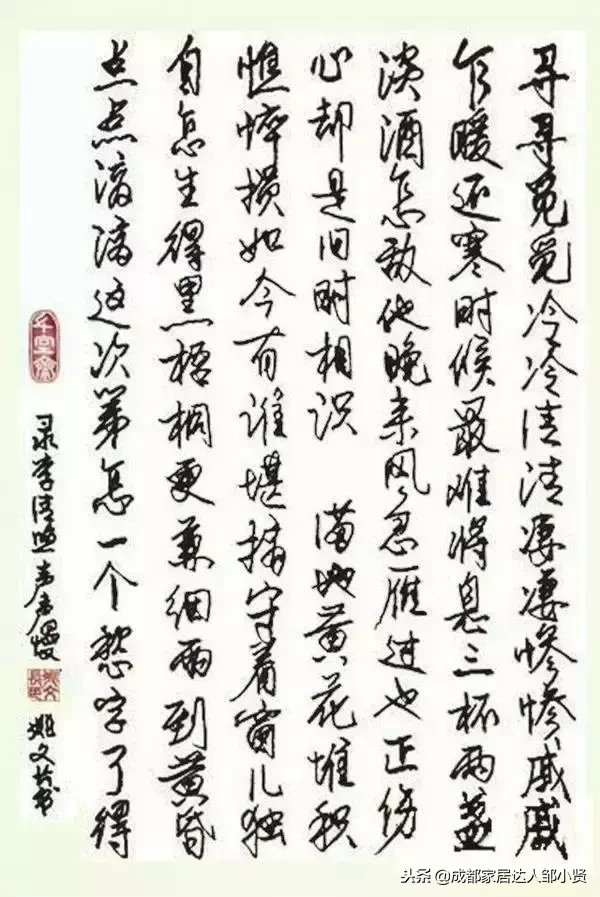 寻寻觅觅冷冷清清凄凄惨惨戚戚
乍暖还寒时候最难将息三杯两盏
淡酒怎敌他晚来风急雁过也正伤
心却是旧时相识 满地黄花堆积
憔悴损如今有谁堪摘守着窗儿独
自怎生得黑梧桐更兼细雨到黄昏
点点滴滴这次第怎一个愁字了得
录李清照声声慢
头条 @成都家居达人邹小贤